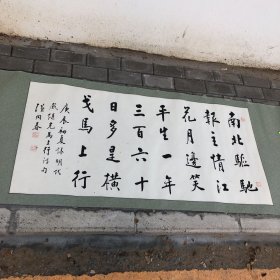 南北驅馳
報主情江
花月邊笑
平生一年
三百六十
日多是橫
戈馬上行
庚辰初夏錄明代
戚繼光馬上行詩句